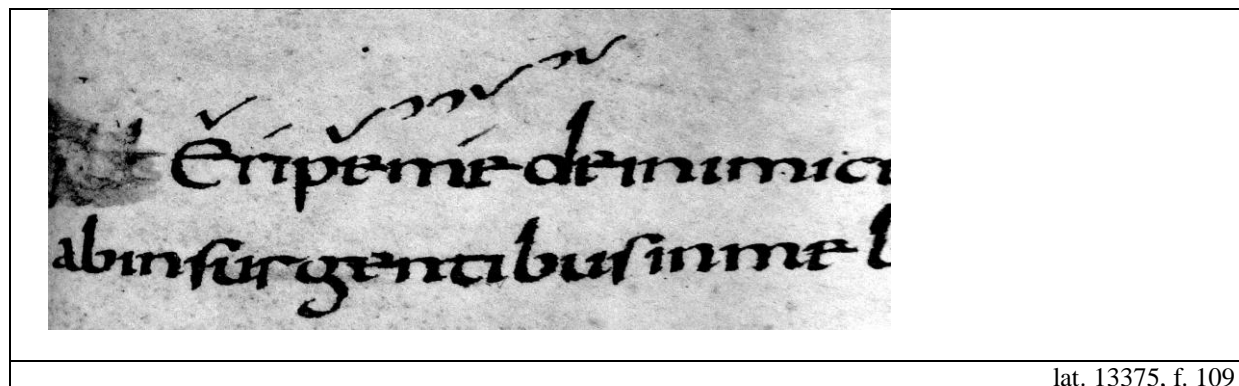 Eripe me de inimici
ab insurgentibus in me l
lat. 13375, f. 109